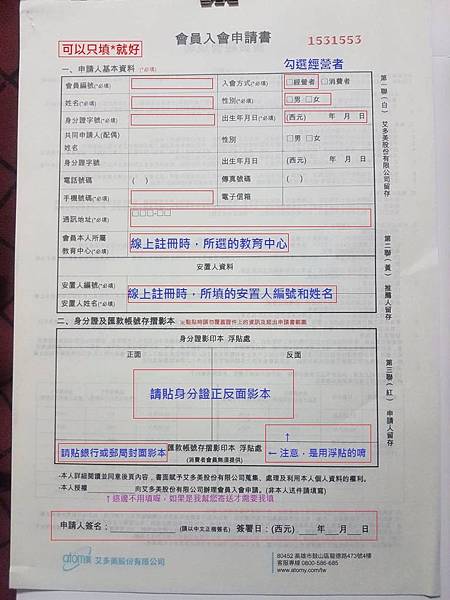 可以只填*就好
會員入會申請書
1531553
一、申請人基本資料(*必填)
勾選經營者
會員編號(*必填)
入會方式(*必填)
□經營者 □消費者
姓名(*必填)
性別(*必填)
□男 □女
身分證字號(*必填)
出生年月日(*必填)
(西元) 年 月 日
共同申請人(配偶)
姓名
性別
□男 □女
身分證字號
出生年月日
(西元) 年 月 日
電話號碼
( )
傳真號碼
( )
手機號碼(*必填)
電子信箱
通訊地址(*必填)
□□□-□□
會員本人所屬
教育中心(*必填)
線上註冊時，所選的教育中心
安置人資料
安置人編號(*必填)
安置人姓名(*必填)
線上註冊時，所填的安置人編號和姓名
二、身分證及匯款帳號存摺影本
※黏貼時請勿覆蓋證件上的資訊及超出申請書範圍
身分證影印本 浮貼處
正面
反面
請貼身分證正反面影本
↑
請貼銀行或郵局封面影本
匯款帳號存摺影印本 浮貼處
(消費者會員無須提供)
← 注意，是用浮貼的唷
-本人詳細閱讀並同意後頁內容，書面賦予艾多美股份有限公司蒐集、處理及利用本人個人資料的權利。
-本人授權 向艾多美股份有限公司辦理會員入會申請。(非本人送件請填寫)
↑這邊不用填喔，如果是我幫您寄送才需要我填
申請人簽名：
(請以中文正楷簽名)
簽署日：(西元) 年 月 日
atom美 艾多美股份有限公司
80452 高雄市鼓山區龍德路473號4樓
客服專線 0800-586-685
www.atomy.com/tw
第一聯(白) 艾多美股份有限公司留存
第二聯(黃) 推薦人留存
第三聯(紅) 申請人留存